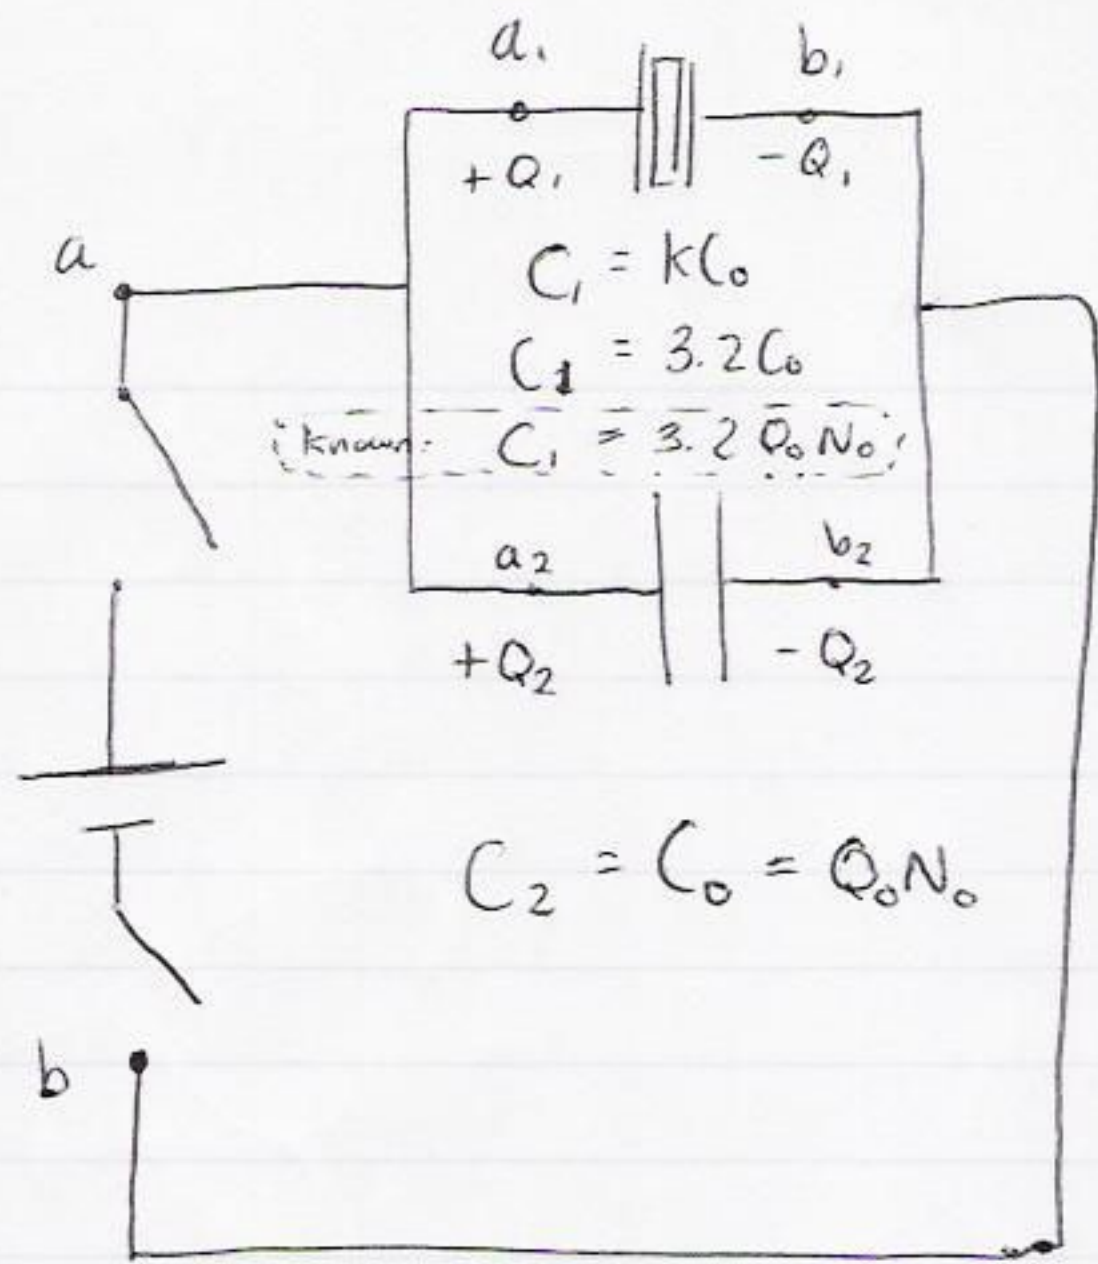 a₁ b₁
+Q₁ -Q₁
a
C₁ = kC₀
C₁ = 3.2C₀
Known: C₁ = 3.2 Q₀N₀
a₂ b₂
+Q₂ -Q₂
C₂ = C₀ = Q₀N₀
b